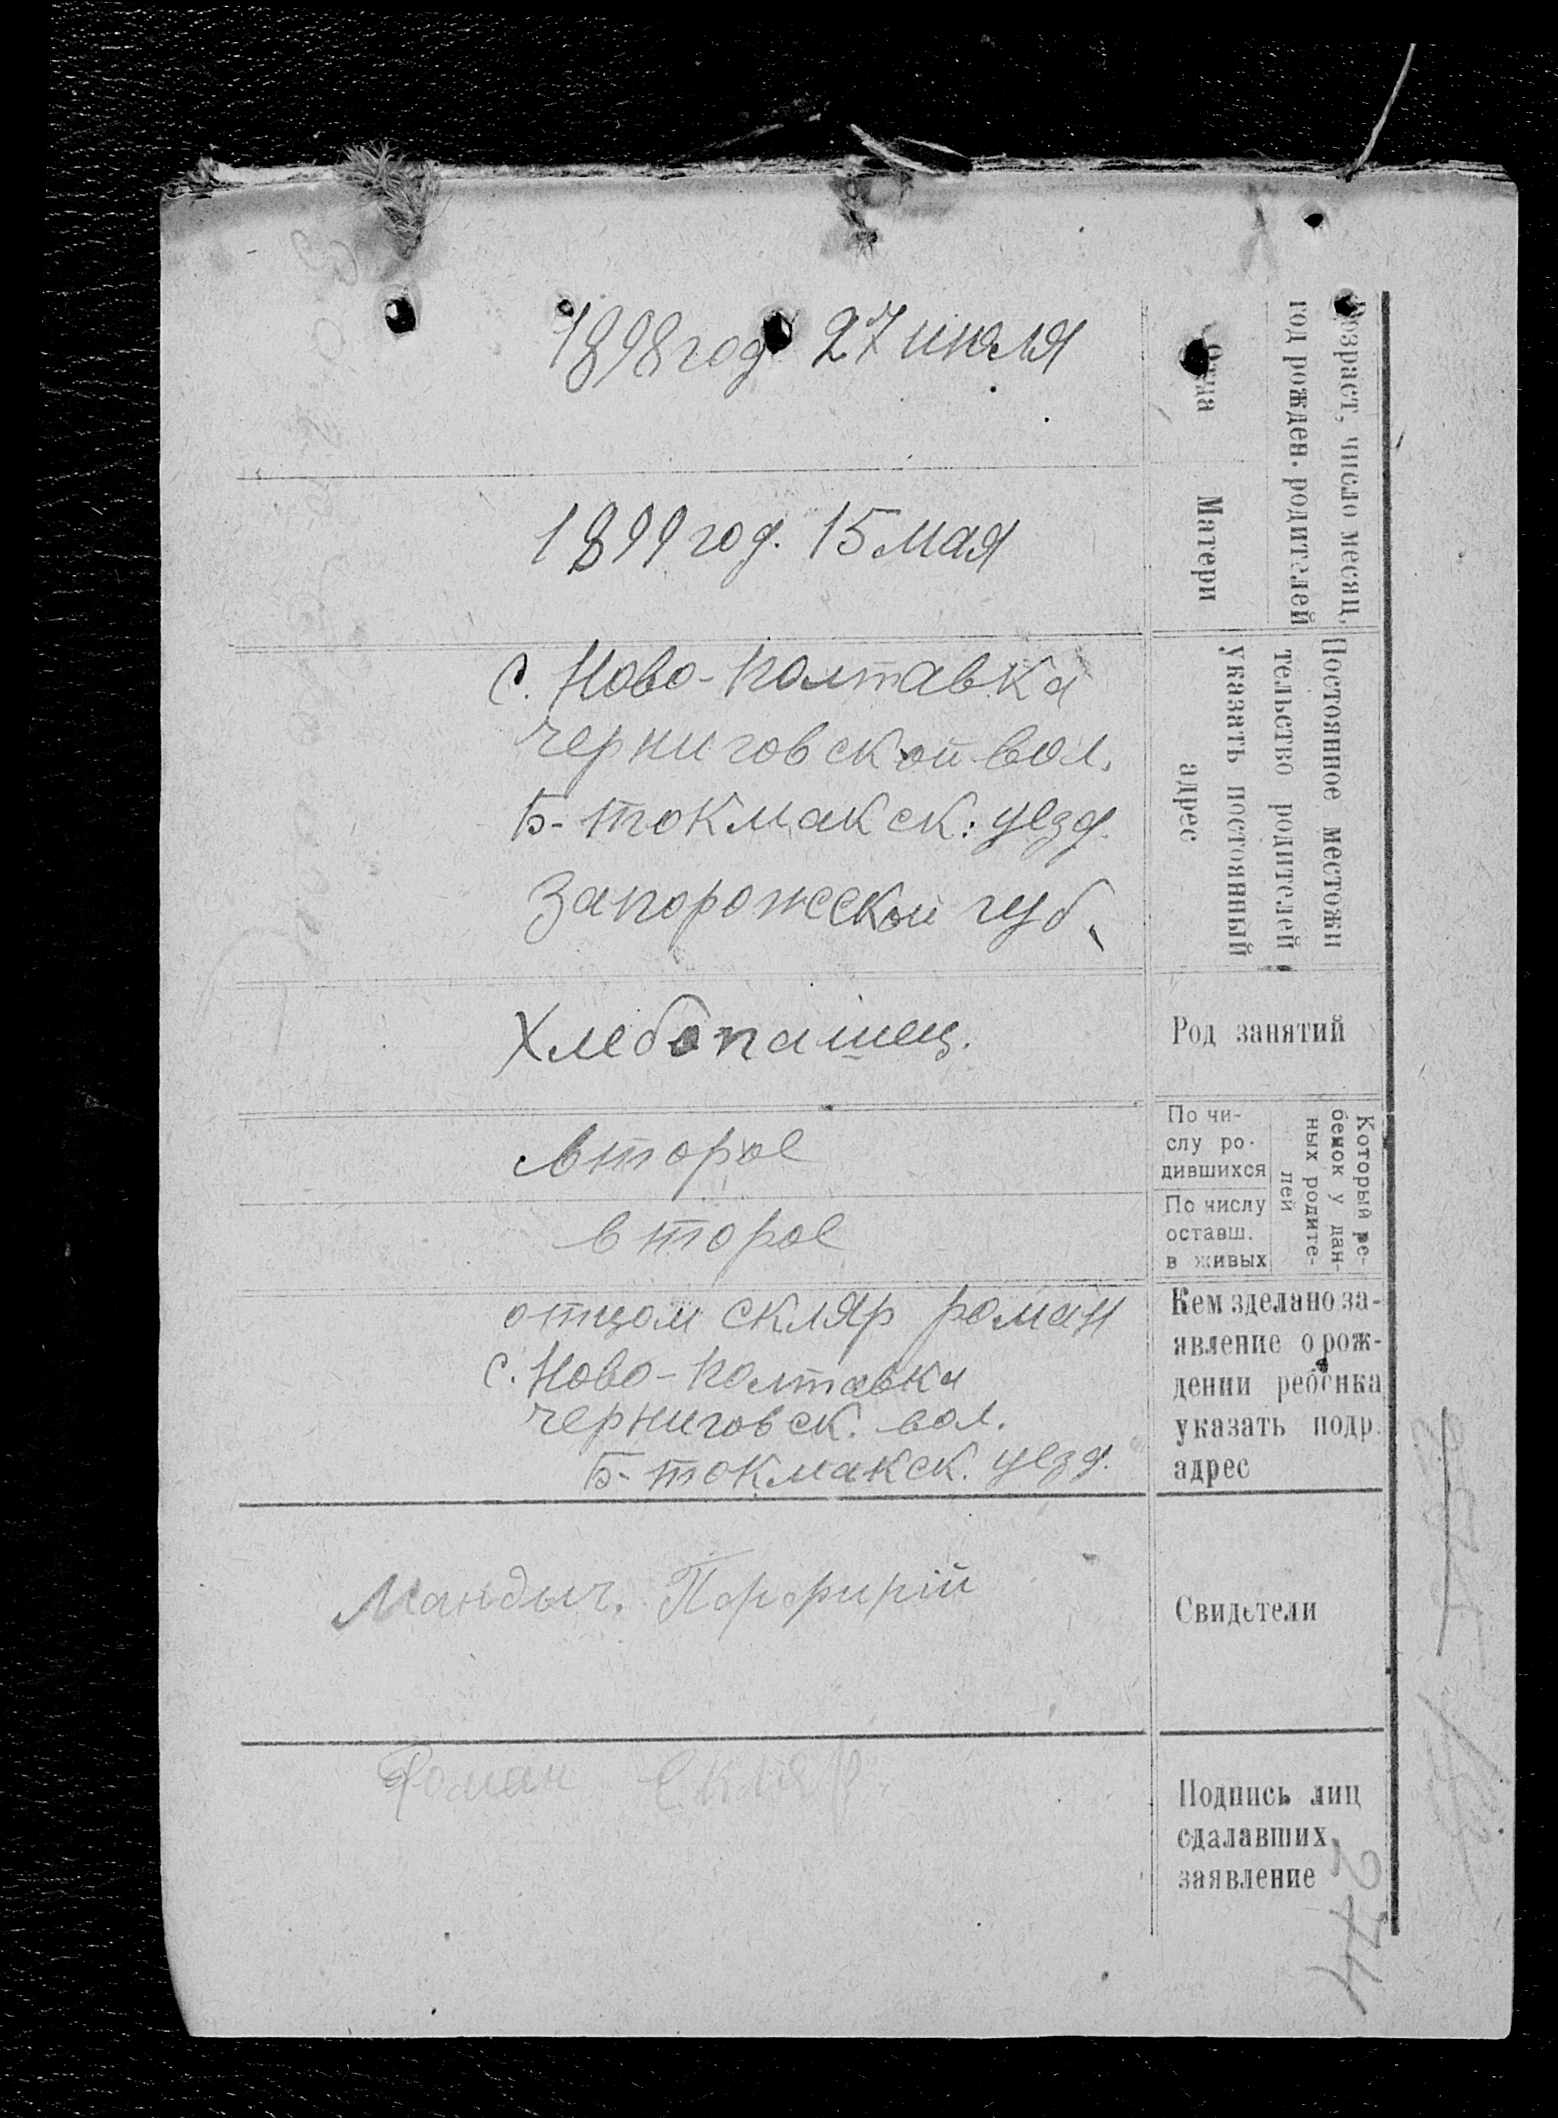 Возраст, число месяц,
год рожден. родителей
Отца
1898 год. 27 июля
Матери
1899 год. 15 мая
Постоянное местожи
тельство родителей
указать постоянный
адрес
с. Ново-Полтавка
черниговской вол.
Б-токмакск: уезд.
Запорожеской губ.
Род занятий
Хлебопашец.
Который ре-
бенок у дан-
ных родите-
лей
По чи-
слу ро-
дившихся
второе
По числу
оставш.
в живых
второе
Кем зделано за-
явление о рож-
дении ребенка
указать подр.
адрес
отцом скляр роман
с. Ново-Полтавка
черниговск. вол.
Б-токмакск. уезд.
Свидетели
Мандыч. Порфирій
Подпись лиц
сдалавших
заявление
Роман Скляр
274